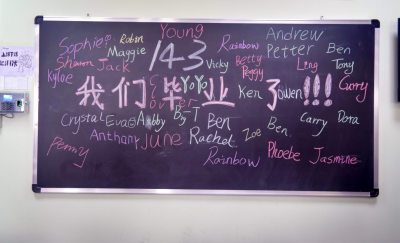 Young Andrew
Sophie Robin 143 Rainbow Petter Ben
Sharon Jack Maggie Vicky Betty Ling Tony
Kyloe Peggy
我们毕业了!!! YoYo Ken Owen Curry
Crystal Eva Abby Ben Carry Dora
Anthany June Rachel Zoe Ben.
Penny Rainbow Phoebe Jasmine